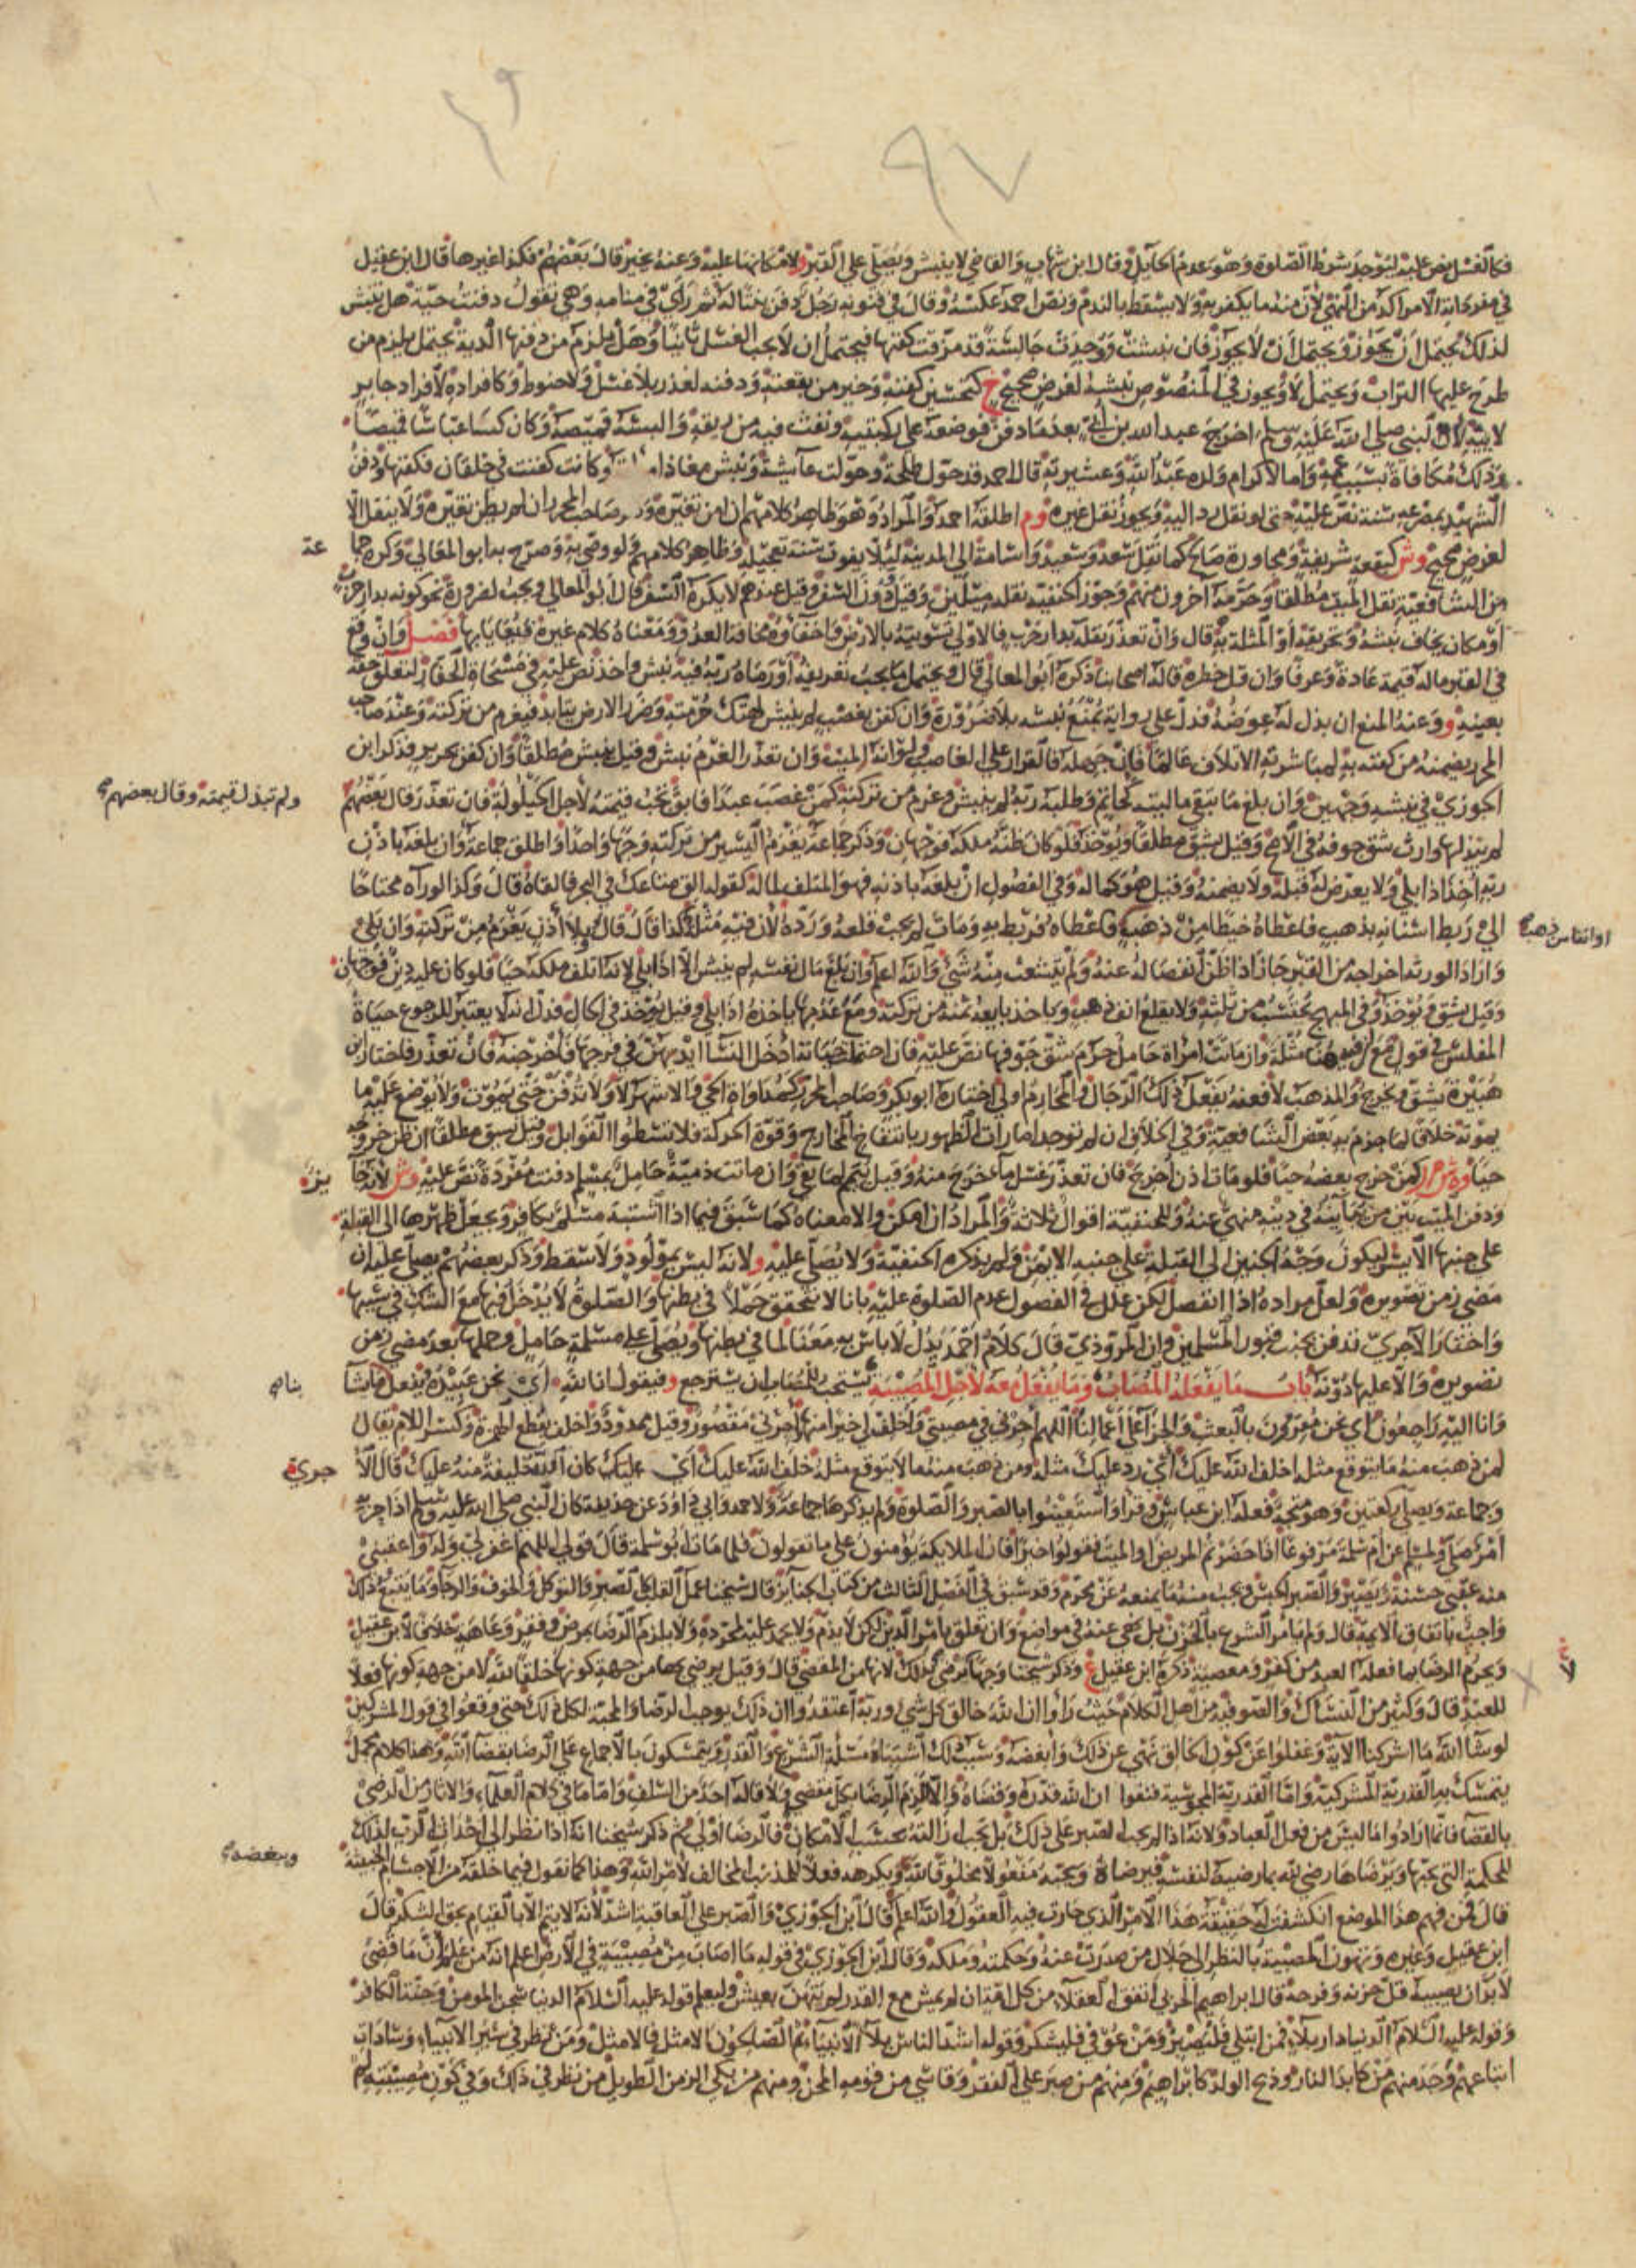 فكالغسل نص عليه ليوجد شرط الصلوة وهو عدم الحايل وقال ابن شهاب والقاضي لا ينبش ويصلي على القبر ولامكانها عليه وعنه يخير قال بعضهم فكذا غيرها قال ابن عقيل
في مفرداته الامر اكد من النهي لان منه ما يكفر به ولا يسقط بالندم ونص احمد عكسه وقال في فنونه رجل دفن بنتا له ثم راى في منامه وهي تقول دفنت حية هل تنبش
لذلك يحتمل ان يجوز ويحتمل ان لا يجوز فان نبشت ووجدت جالسة قد مزقت كفنها فيحتمل ان لا يجب الغسل ثانيا وهل يلزم من دفنها الدية يحتمل يلزم من
طرح عليها التراب ويحتمل لا ويجوز في المنصوص نبشه لغرض صحيح خ كتحسين كفنه وخير من بقعته ودفنه لعذر بلا غسل ولا حنوط وكافراده لافراد جابر
لابيه لان النبي صلى الله عليه وسلم اخرج عبد الله بن ابي بعد ما دفن فوضعه على ركبتيه ونفث فيه من ريقه والبسه قميصه وكان كسا عباسا قميصا
وذلك مكافاة بسبب عمه واما لاكرام ولده عبد الله وعشيرته قال احمد قد حول طلحة وحولت عايشة ونبش معاذ امراته وكانت كفنت في خلقان فكفنها ودفن
الشهيد بمصرعه سنة نص عليه حتى لو نقل رد اليه ويجوز نقل غيره وم اطلقه احمد والمراد وهو ظاهر كلامهم ان امن تغيره وذكر صاحب المحرر ان لم يظن تغيره ولا ينقل الا
لغرض صحيح وش كبقعة شريفة ومجاورة صالح كما نقل سعد وسعيد واسامة الى المدينة ليلا يفوت سنة تعجيله وظاهر كلامهم ولو وصى به وصرح به ابو المعالي وكره جما
عة
من الشافعية نقل الميت مطلقا وحرمه اخرون منهم وجوز الحنفية نقله ميلين وقيل دون السفر وقيل عندهم لا يكره السفر قال ابو المعالي ويجب لضرورة نحو كونه بدار حرب
او مكان يخاف نبشه وتحريقه او المثلة به قال وان تعذر نقله بدار حرب فالاولى تسويته بالارض واخفاوه مخافة العدو ومعناه كلام غيره فيعايا بها فصل وان وقع
في القبر ماله قيمة عادة وعرفا وان قل خطره قاله اصحابنا ذكره ابو المعالي قال ويحتمل ما يجب تعريفه او رماه ربه فيه نبش واخذ نص عليه في مسحاة الحفار لتعلق حقه
بعينه و وعنه المنع ان بذل له عوضه فدل على رواية تمنع نبشه بلا ضرورة وان كفن بغصب لم ينبش لهتك حرمته وضرر الارض يتابد فيغرم من تركته وعند صاحب
المحرر يضمنه من كفنه به لمباشرته الاتلاف عالما فان جهله فالقرار على الغاصب ولو انه الميت وان تعذر الغرم نبش وقيل ينبش مطلقا وان كفن بحرير فذكر ابن
الجوزي في نبشه وجهين وان بلع ما تبقى ماليته كخاتم وطلبه ربه لم ينبش وغرم من تركته كمن غصب عبدا فابق تجب قيمته لاجل الحيلولة فان تعذر قال بعضهم
ولم تبذل قيمته وقال بعضهم صح
لم يبذلها وارث شق جوفه في الاصح وقيل يشق مطلقا ويوخذ فلو كان ظنه ملكه فوجهان وذكر جماعة يغرم اليسير من تركته وجها واحدا واطلق جماعة وان بلعه باذن
ربه اخذ اذا بلي ولا يعرض له قبله ولا يضمنه وقيل هو كماله وفي الفصول ان بلعه باذنه فهو المتلف لماله كقوله الق متاعك في البحر فالقاه قال وكذا لو راه محتاجا
الى ربط اسنانه بذهب فاعطاه خيطا من ذهب فاعطاه فربط به ومات لم يجب قلعه ورده لان فيه مثلة كذا قال قال وبلا اذن يغرم من تركته وان بلي
او انفا من ذهب صح
واراد الورثة اخراجه من القبر جاز اذا ظن انفصاله عنه ولم يتشعث منه شيء والله اعلم وان بلع مال نفسه لم ينبش الا اذا بلي لانه اتلف ملكه حيا فلو كان عليه دين فوجهان
وقيل يشق ويوخذ وفي المبهج يحتسب من ثلثه ولا يقلع انف ذهب وياخذ بايعه ثمنه من تركته ومع عدمها ياخذه اذا بلي وقيل يوخذ في الحال فدل انه لا يعتبر للرجوع حياة
المفلس في قول مع ان فيه هنا مثلة وان ماتت امراة حامل حرم شق جوفها نص عليه فان احتمل حياته ادخل النسا ايديهن في فرجها فاخرجنه فان تعذر فاختار ابن
هبيرة يشق ويخرج والمذهب لا فعنه يفعل ذلك الرجال والمحارم اولى اختاره ابو بكر وصاحب المحرر كمداواة الحي والاشهر لا ولا تدفن حتى يموت ولا يوضع عليه ما
يموته خلافا لما جزم به بعض الشافعية وفي الخلاف ان لم توجد امارات الظهور بانتفاخ المخارج وقوة الحركة فلا تسطوا القوابل وقيل يشق مطلقا ان ظن خروجه
حيا وه ش ر كمن خرج بعضه حيا فلو مات اذن اخرج فان تعذر غسل ما خرج منه وقيل يتيمم لما بقي وان ماتت ذمية حامل بمسلم دفنت مفردة نص عليه وش لان جا
يز
ودفن الميت بين من يباينه في دينه منهي عنه وللحنفية اقوال ثلاثة والمراد ان امكن والا معناه كما سبق فيما اذا اشتبه مسلم بكافر ويجعل ظهرها الى القبلة
على جنبها الايسر ليكون وجه الجنين الى القبلة على جنبه الايمن ولم يذكره الحنفية ولا يصلى عليه و لانه ليس بمولود ولا سقط وذكر بعضهم يصلى عليه ان
مضى زمن تصويره ولعل مراده اذا انفصل لكن علل في الفصول عدم الصلوة عليه بانا لا نتحقق حملا في بطنها والصلوة لا يدخل فيها مع الشك في سببها
واختار الاجري تدفن بجنب قبور المسلمين وان المروذي قال كلام احمد يدل لا باس به معنا لما في بطنها ويصلى على مسلمة حامل وحملها بعد مضي زمن
تصويره والا عليها دونه باب ما يفعله المصاب وما يفعل معه لاجل المصيبة يستحب للمصاب ان يسترجع و فيقول انا لله اي نحن عبيده يفعل ما شا
بنا صح
وانا اليه راجعون اي نحن مقرون بالبعث والجزا على اعمالنا اللهم اجرني في مصيبتي واخلف لي خيرا منها اجرني مقصور وقيل ممدود واخلف بقطع الهمزة وكسر اللام يقال
لمن ذهب منه ما يتوقع مثله اخلف الله عليك اي رد عليك مثله ومن ذهب منه ما لا يتوقع مثله خلف الله عليك اي كان الله خليفة منه عليك قال الا
جري
وجماعة ويصلي ركعتين وهو متجه فعله ابن عباس وقرا واستعينوا بالصبر والصلوة ولم يذكرها جماعة ولاحمد وابي داود عن حذيفة كان النبي صلى الله عليه وسلم اذا حزبه
امر صلى ولمسلم عن ام سلمة مرفوعا اذا حضرتم المريض او الميت فقولوا خيرا فان الملايكة يؤمنون على ما تقولون فلما مات ابو سلمة قال قولي اللهم اغفر لي وله واعقبني
منه عقبى حسنة ويصبر والصبر الحبس ويجب منه ما يمنعه عن محرم وقد سبق في الفصل الثالث من كتاب الجنايز قال شيخنا عمل القلب كالصبر والتوكل والخوف والرجا وما يتبع ذلك
واجب باتفاق الايمة قال ولم يامر الشرع بالحزن بل نهى عنه في مواضع وان تعلق بامر الدين لكن لا يذم ولا يحمد عليه لمجرده ولا يلزم الرضا بمرض وفقر وعاهة خلافا لابن عقيل
ويحرم الرضا بما فعله العبد من كفر ومعصية ذكره ابن عقيل ع وذكر شيخنا وجها يرضى بذلك لانها من المقضي قال وقيل يرضى بها من جهة كونها خلقا لله لا من جهة كونها فعلا
للعبد قال وكثير من النساك والصوفية ومن اهل الكلام حيث راوا ان الله خالق كل شيء وربه اعتقدوا ان ذلك يوجب الرضا والمحبة لكل ذلك حتى وقعوا في قول المشركين
لو شا الله ما اشركنا الاية وغفلوا عن كون الخالق نهى عن ذلك وابغضه وسبب ذلك اشتباه مسئلة الشرع والقدر ويتمسكون بالاجماع على الرضا بقضا الله وهذا كلام مجمل
يتمسك به القدرية المشركية واما القدرية المجوسية فنفوا ان الله قدره وقضاه والا لزم الرضا بكل مقضي ولا قاله احد من السلف واما ما في كلام العلماء والاثار من الرضى
بالقضا فانما ارادوا ما ليس من فعل العباد ولانه اذا لم يجب الصبر على ذلك بل يجب ازالته بحسب الامكان فالرضا اولى ثم ذكر شيخنا انه اذا نظر الى احداث الرب لذلك
للحكمة التي يحبها ويرضاها رضي لله بما رضيه لنفسه فيرضاه ويحبه مفعولا مخلوقا لله ويكرهه فعلا للمذنب المخالف لامر الله وهذا كما نقول فيما خلقه من الاجسام الخبيثة
ويبغضه صح
قال فمن فهم هذا الموضع انكشفت له حقيقة هذا الامر الذي حارت فيه العقول والله اعلم قال ابن الجوزي والصبر على العافية اشد لانه لا يتم الا بالقيام بحق الشكر قال
ابن عقيل وغيره وتهون المصيبة بالنظر الى جلال من صدرت عنه وحكمته وملكه وقال ابن الجوزي في قوله ما اصاب من مصيبة في الارض اعلم انه من علم ان ما قضي
لا بد ان يصيبه قل حزنه وفرحه قال ابراهيم الحربي اتفق العقلاء من كل امة ان لم يمش مع القدر لم يتهن بعيش وليعلم قوله عليه السلام الدنيا سجن المومن وجنة الكافر
وقوله عليه السلام الدنيا دار بلاء فمن ابتلي فليصبر ومن عوفي فليشكر وقوله اشد الناس بلاء الانبياء ثم الصالحون الامثل فالامثل ومن نظر في سير الانبياء وسادات
اتباعهم وجد منهم من كابد النار وذبح الولد كابراهيم ومنهم من صبر على الفقر وقاسى من قومه المحن ومنهم من بكى الزمن الطويل فمن نظر في ذلك وفي كون مصيبته لم